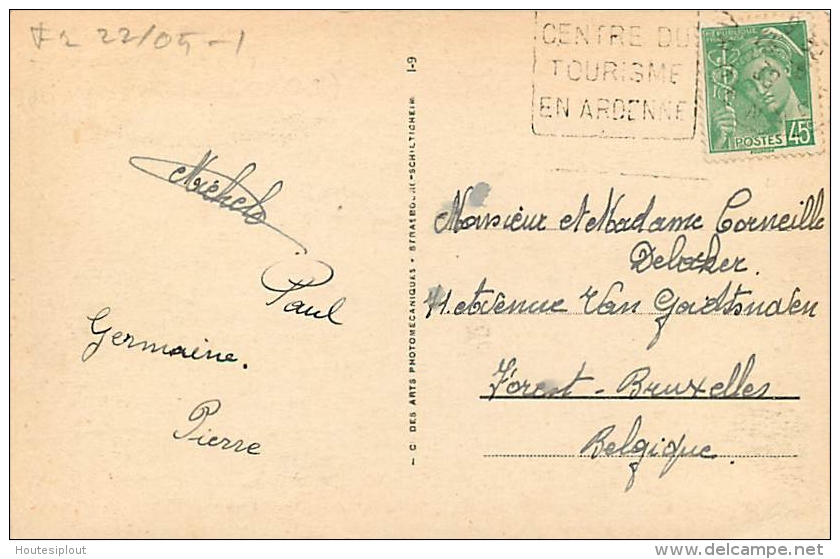 Fr 22/05-1
CENTRE DU
TOURISME
EN ARDENNE
REPUBLIQUE
FRANÇAISE
POSTES 45c
Michels
Paul
Germaine.
Pierre
– C DES ARTS PHOTOMÉCANIQUES • STRASBOURG-SCHILTIGHEIM 1-9
Monsieur et Madame Corneille
Debacker.
71. Avenue Van
Forest - Bruxelles
Belgique.
Houtesiplout
delcampe.net